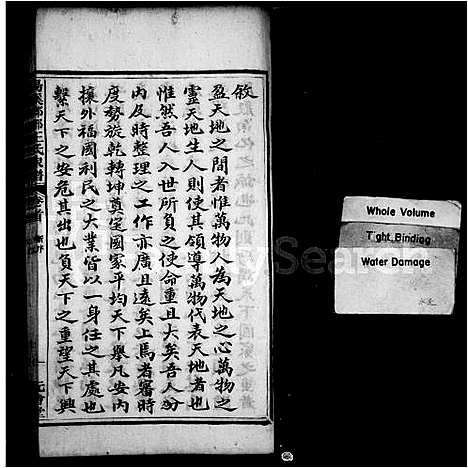 敘
盈天地之間者惟萬物人為天地之心萬物之
靈天地生人則使其領導萬物代表天地者也
惟然吾人入世所負之使命重且大矣吾人分
內及時整理之工作亦廣且遠矣上馬者審時
度勢旋乾轉坤奠定國家平均天下舉凡安內
攘外福國利民之大業皆以一身任之其處也
繫天下之安危其出也負天下之重望天下興
卷首
Whole Volume
Tight Binding
Water Damage